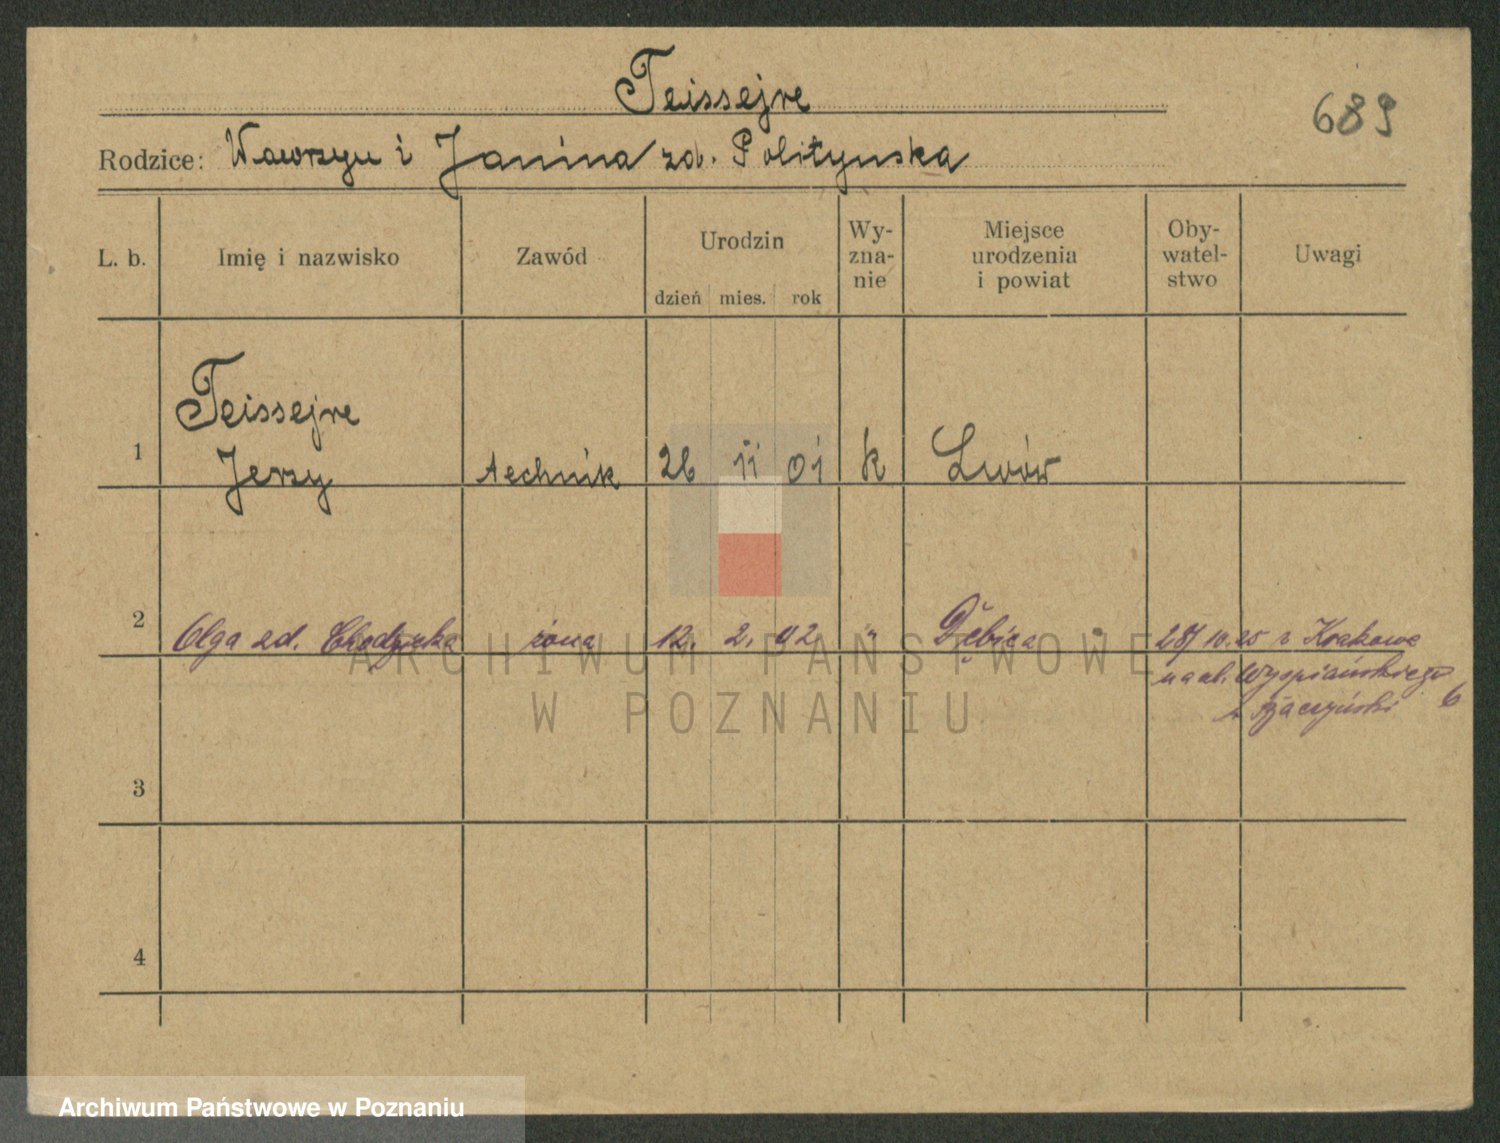 Teissejre
689
Rodzice: Wawrzyn i Janina zd. Polityńska
L. b.
Imię i nazwisko
Zawód
Urodzin
dzień mies. rok
Wy-
zna-
nie
Miejsce
urodzenia
i powiat
Oby-
watel-
stwo
Uwagi
Teissejre
1 Jerzy technik 26 11 01 k Lwów
2 Olga zd. żona 12. 2. 02 " Dębica 28/10.25 z Krakowa
na ul. Wyspiańskiego
6
3
4
ARCHIWUM PAŃSTWOWE
W POZNANIU
Archiwum Państwowe w Poznaniu